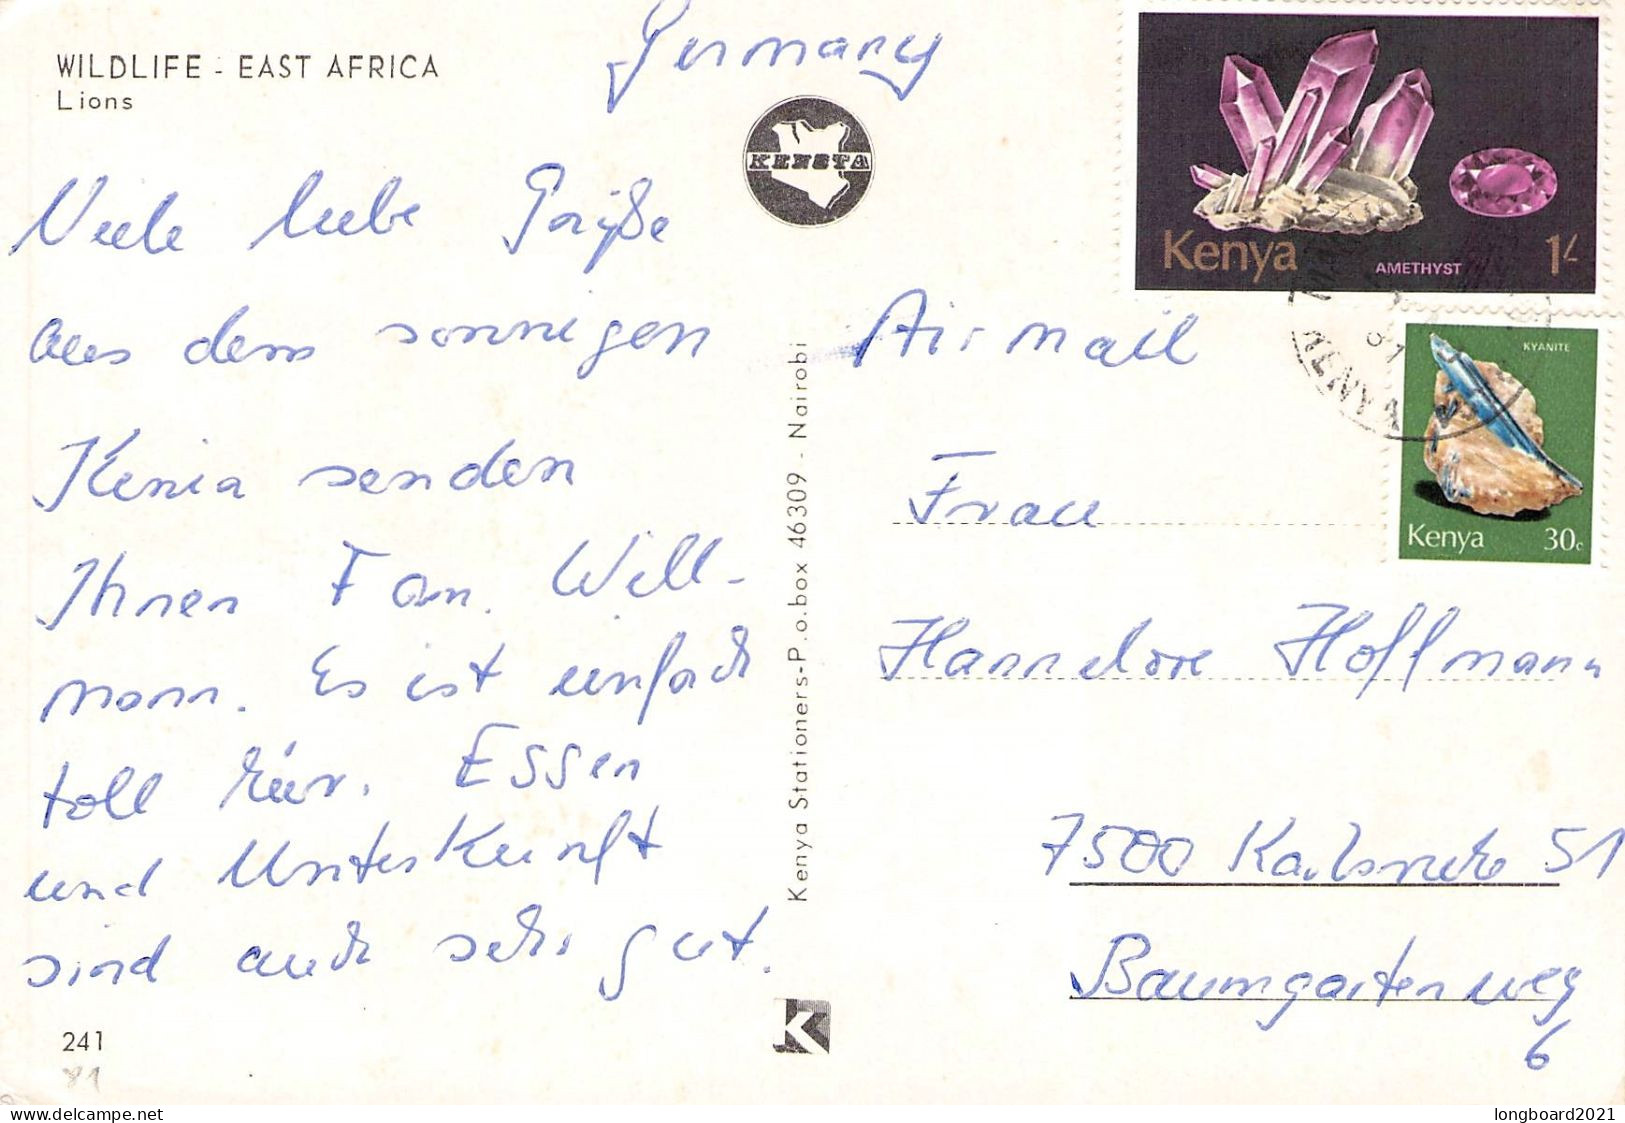 WILDLIFE - EAST AFRICA
Lions
Viele liebe Grüße
aus dem sonnigen
Kenia senden
Ihnen Fam. Will-
mann. Es ist einfach
toll hier. Essen
und Unterkunft
sind auch sehr gut.
241
81
KENSTA
Kenya Stationers-P.o.box 46309 - Nairobi
K
Germany
Air mail
Frau
Hannelore Hoffmann
7500 Karlsruhe 51
Baumgartenweg
6
Kenya AMETHYST 1/-
KYANITE
Kenya 30c
KENYA
81
www.delcampe.net
longboard2021